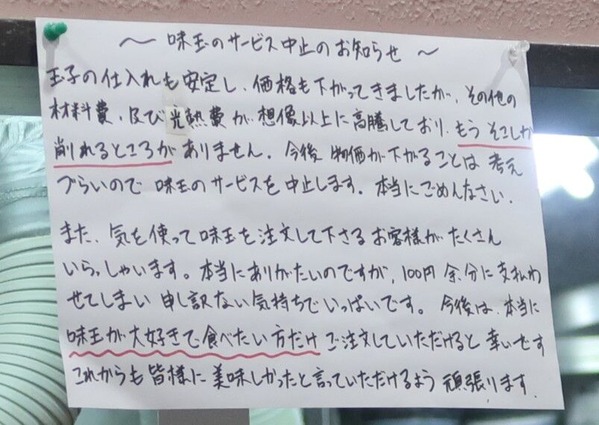 〜 味玉のサービス中止のお知らせ 〜
玉子の仕入れも安定し、価格も下がってきましたが、その他の
材料費、及び光熱費が想像以上に高騰しており、もうそこしか
削れるところがありません。今後物価が下がることは考え
づらいので味玉のサービスを中止します。本当にごめんなさい。
また、気を使って味玉を注文して下さるお客様がたくさん
いらっしゃいます。本当にありがたいのですが、100円余分に支払わ
せてしまい申し訳ない気持ちでいっぱいです。今後は、本当に
味玉が大好きで食べたい方だけご注文していただけると幸いです
これからも皆様に美味しかったと言っていただけるよう頑張ります。